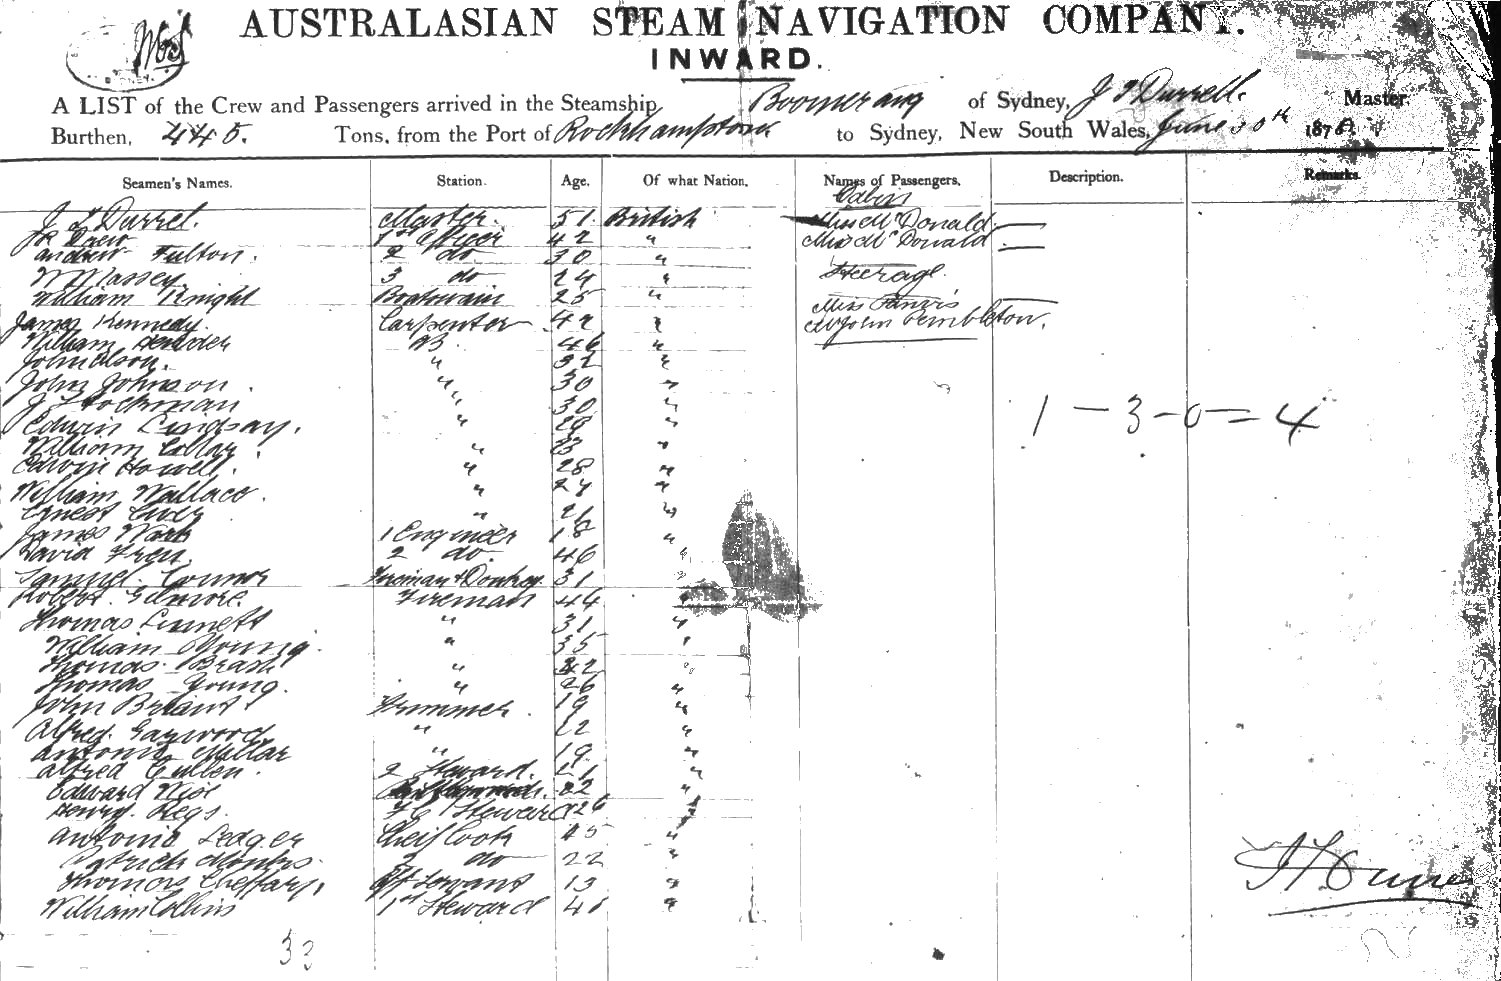 AUSTRALASIAN STEAM NAVIGATION COMPANY.
INWARD.
A LIST of the Crew and Passengers arrived in the Steamship Boomerang of Sydney, Master.
Burthen, 445. Tons, from the Port of Rockhampton to Sydney, New South Wales, June 30th 187
Seamen's Names. Station. Age. Of what Nation. Names of Passengers. Description. Remarks.
Cabin
J Durrel. Master. 51. British Miss McDonald
J Drew 1st Officer 42 " Miss McDonald
Andrew Fulton. 2 do 30 "
W Massey. 3 do 24 " Steerage.
William Knight Boatswain 25 " Miss
James Kennedy. Carpenter 42 " John Pembleton.
William AB 46 "
John Olson. " 32 "
John Johnson. " 30 "
J Hockman " 30 "
1 - 3 - 0 = 4
Edwin Lindsay. " 29 "
William Collar " 23 "
Edwin Howell. " 28 "
William Wallace. " 24 "
Ernest " 21 "
James Wark 1 Engineer 18 "
David 2 do. 46 "
Samuel Connor Fireman & Donkey 31 "
Robert Gilmore. Fireman 44 "
Thomas Linnett " 31 "
William Young. " 35 "
Thomas Brash " 42 "
Thomas Young. " 26 "
John Briant Trimmer. 19 "
Alfred Garwood " 22 "
Antonio Millar " 19 "
Alfred Cullen. 2 Steward. 21 "
Edward 22 "
Henry Steward 26 "
Antonio Ledger Cheif Cook 45 "
Patrick 2 do 22 "
Thomas Servant 13 "
William Collins 1st Steward 41 "
33